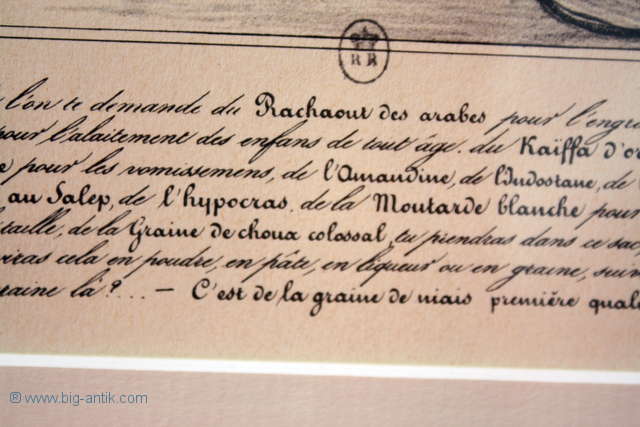 RR
l'on te demande du Rachaout des arabes pour l'engra
pour l'alaitement des enfans de tout âge. du Kaïffa d'or
pour les vomissemens, de l'Amandine, de l'Indostane, de
au Salep, de l'hypocras. de la Moutarde blanche pour
taille, de la Graine de choux colossal, tu prendras dans ce sac,
viras cela en poudre, en pâte, en liqueur ou en graine, suiv
raine là?... — C'est de la graine de niais première quali
® www.big-antik.com